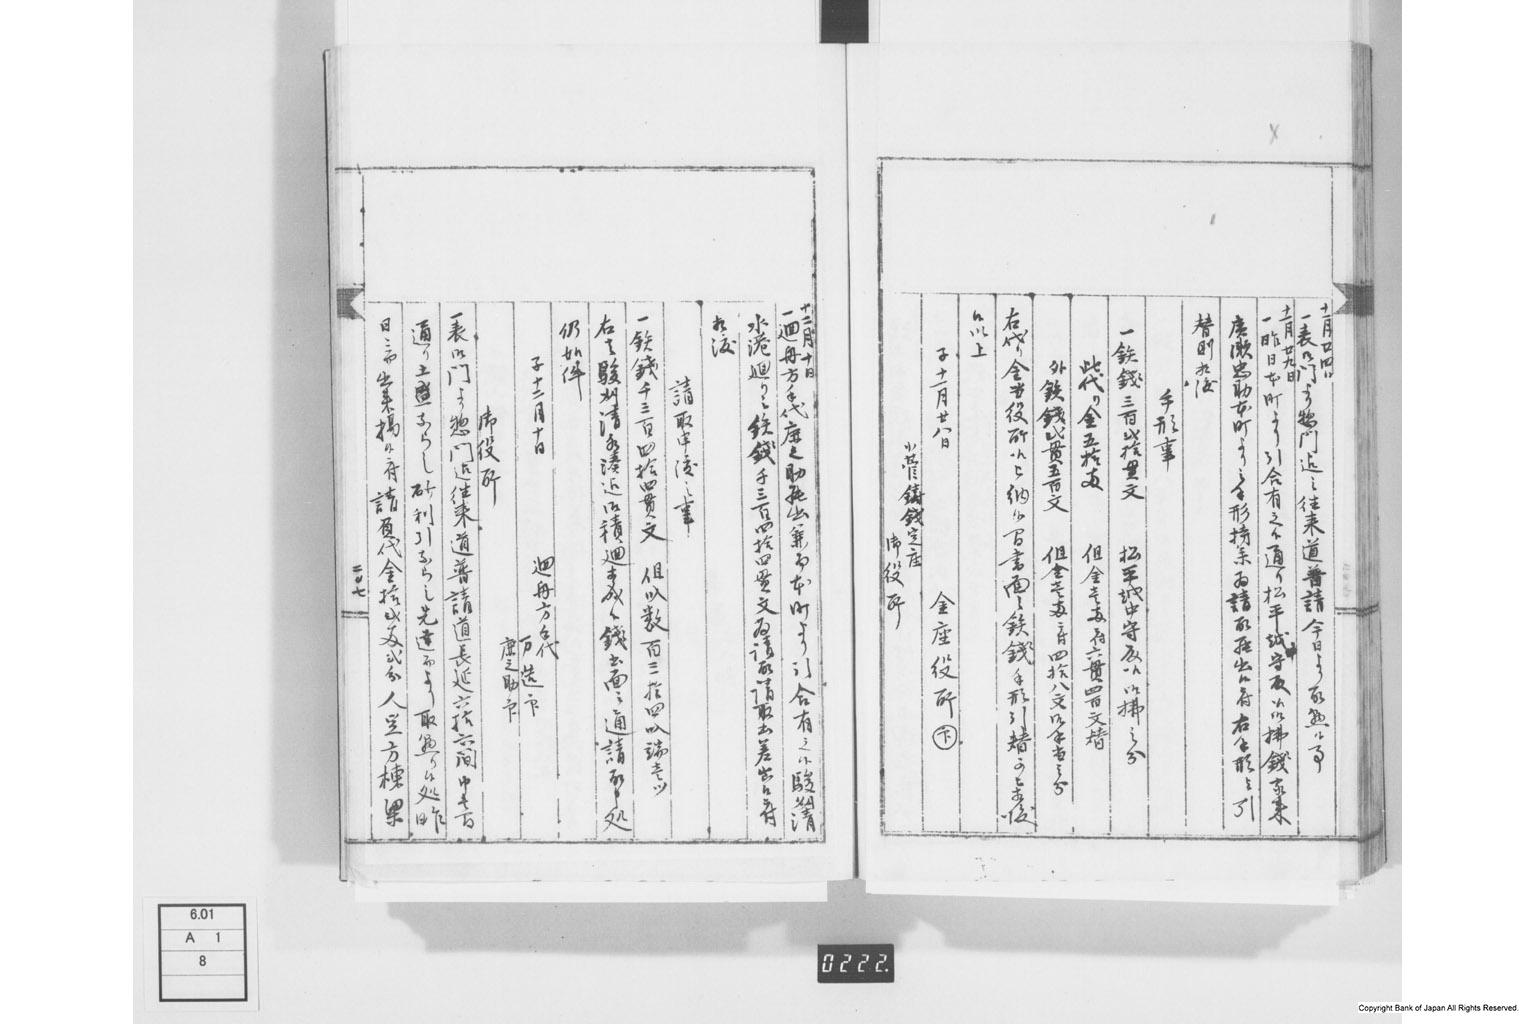 十一月廿四日
一表御門ゟ惣門迄之往来道普請今日ゟ取懸候事
十一月廿九日
一昨日本町ゟ引合有之候通り松平越中守殿江御払銭家来
廣瀬忠助本町ゟ之手形持参為請取罷出候付右手形与引
替則相渡
手形事
一鉄銭三百弐拾貫文 松平越中守殿江御拂之分
此代り金五拾両 但金壱両ニ付六貫四百文替
外鉄銭弐貫五百文 但金壱両ニ付四拾八文御手当之分
右代り金当役所江上納候間書面之鉄銭手形引替可被相渡
候以上
子十一月廿八日 金座役所
小菅鋳銭定座
御役所
十二月十日
一廻舟方手代庄之助罷出兼而本町ゟ引合有之候駿州清
水港廻り之鉄銭千三百四拾四貫文為請取請取書差出候付
相渡
請取申渡之事
一鉄銭千三百四拾四貫文 但叺数百三拾四叺端壱ツ
右者駿州清水湊迄御積廻相成候銭書面之通請取申処
仍如件
子十二月十日 廻舟方手代
万造印
庄之助印
御役所
一表御門ゟ惣門迄往来道普請道長延六拾六間巾壱間
通り土盛ならし砂利引ならし先達而ゟ取懸り候処昨
日ニ而出来揚候付請負代金拾弐両弐分人足方棟梁
二〇七
6.01
A 1
8
0222.
Copyright Bank of Japan All Rights Reserved.